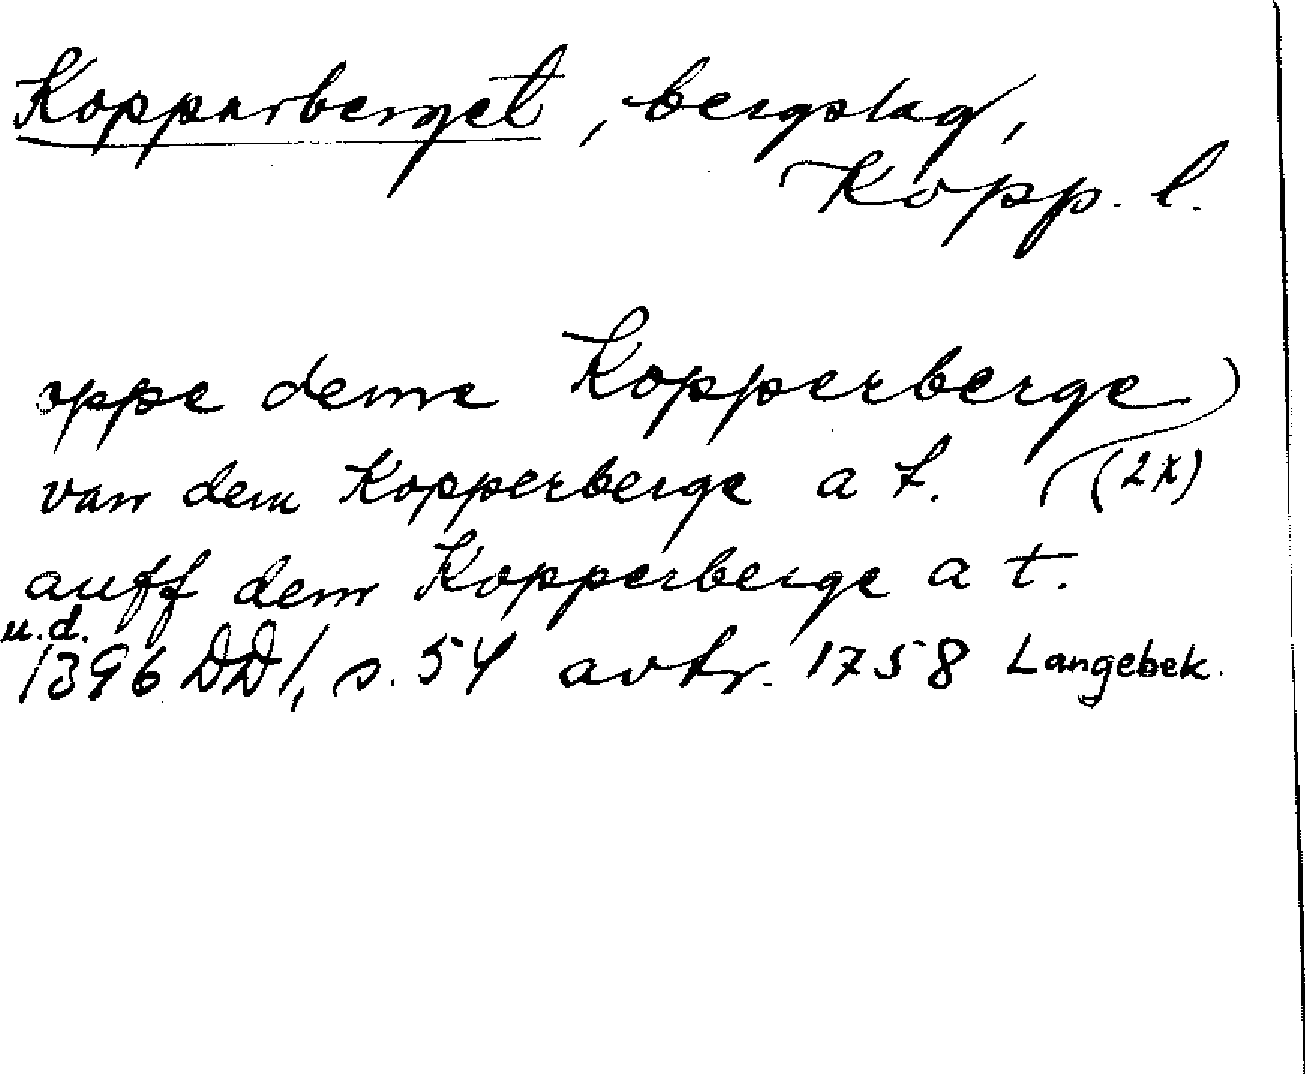 Kopparberget, bergslag,
Kopp. l.
oppe deme Kopperberge
van dem Kopperberge a t. (2x)
auff dem Kopperberge a t.
u.d.
1396 DD 1, s. 54 avtr. 1758 Langebek.